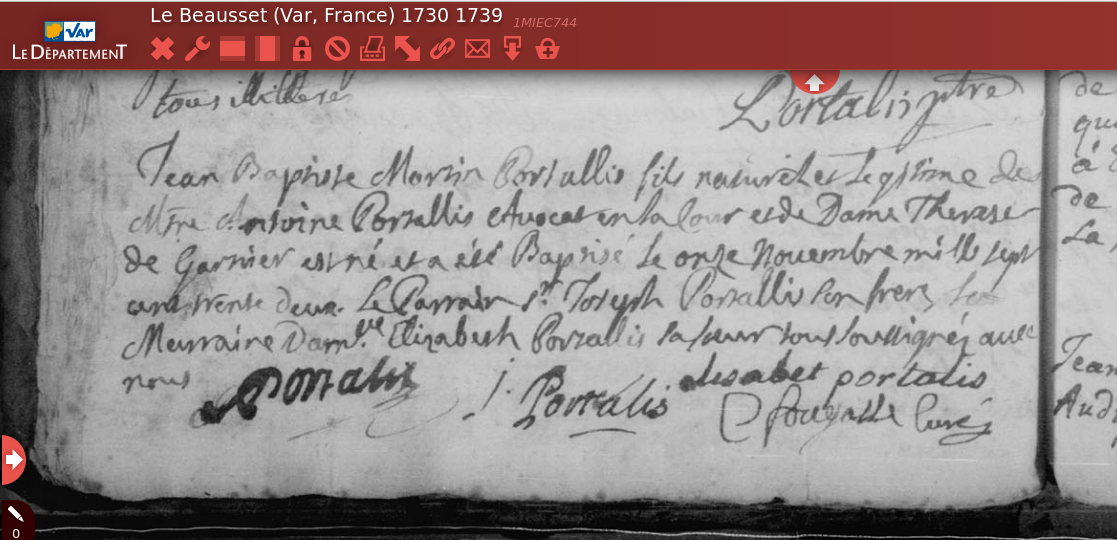 Le Beausset (Var, France) 1730 1739
1MIEC744
VAR
LE DÉPARTEMENT
tous illitteré
Portalis ptre
Jean Baptiste Morin Portallis fils naturel et Legitime de
Mtre Antoine Portallis Avocat en la Cour et de Dame Therese
de Garnier est né et a été Baptisé Le onze Novembre mille sept
cent trente deux. Le Parrain sr. Joseph Portallis son frere
Marraine Elizabeth Portallis sa sœur tous soussignés avec
nous
Portalis
J. Portalis
elisabet portalis
Curé
de
qu
à
de
La
Jean
Aud
0